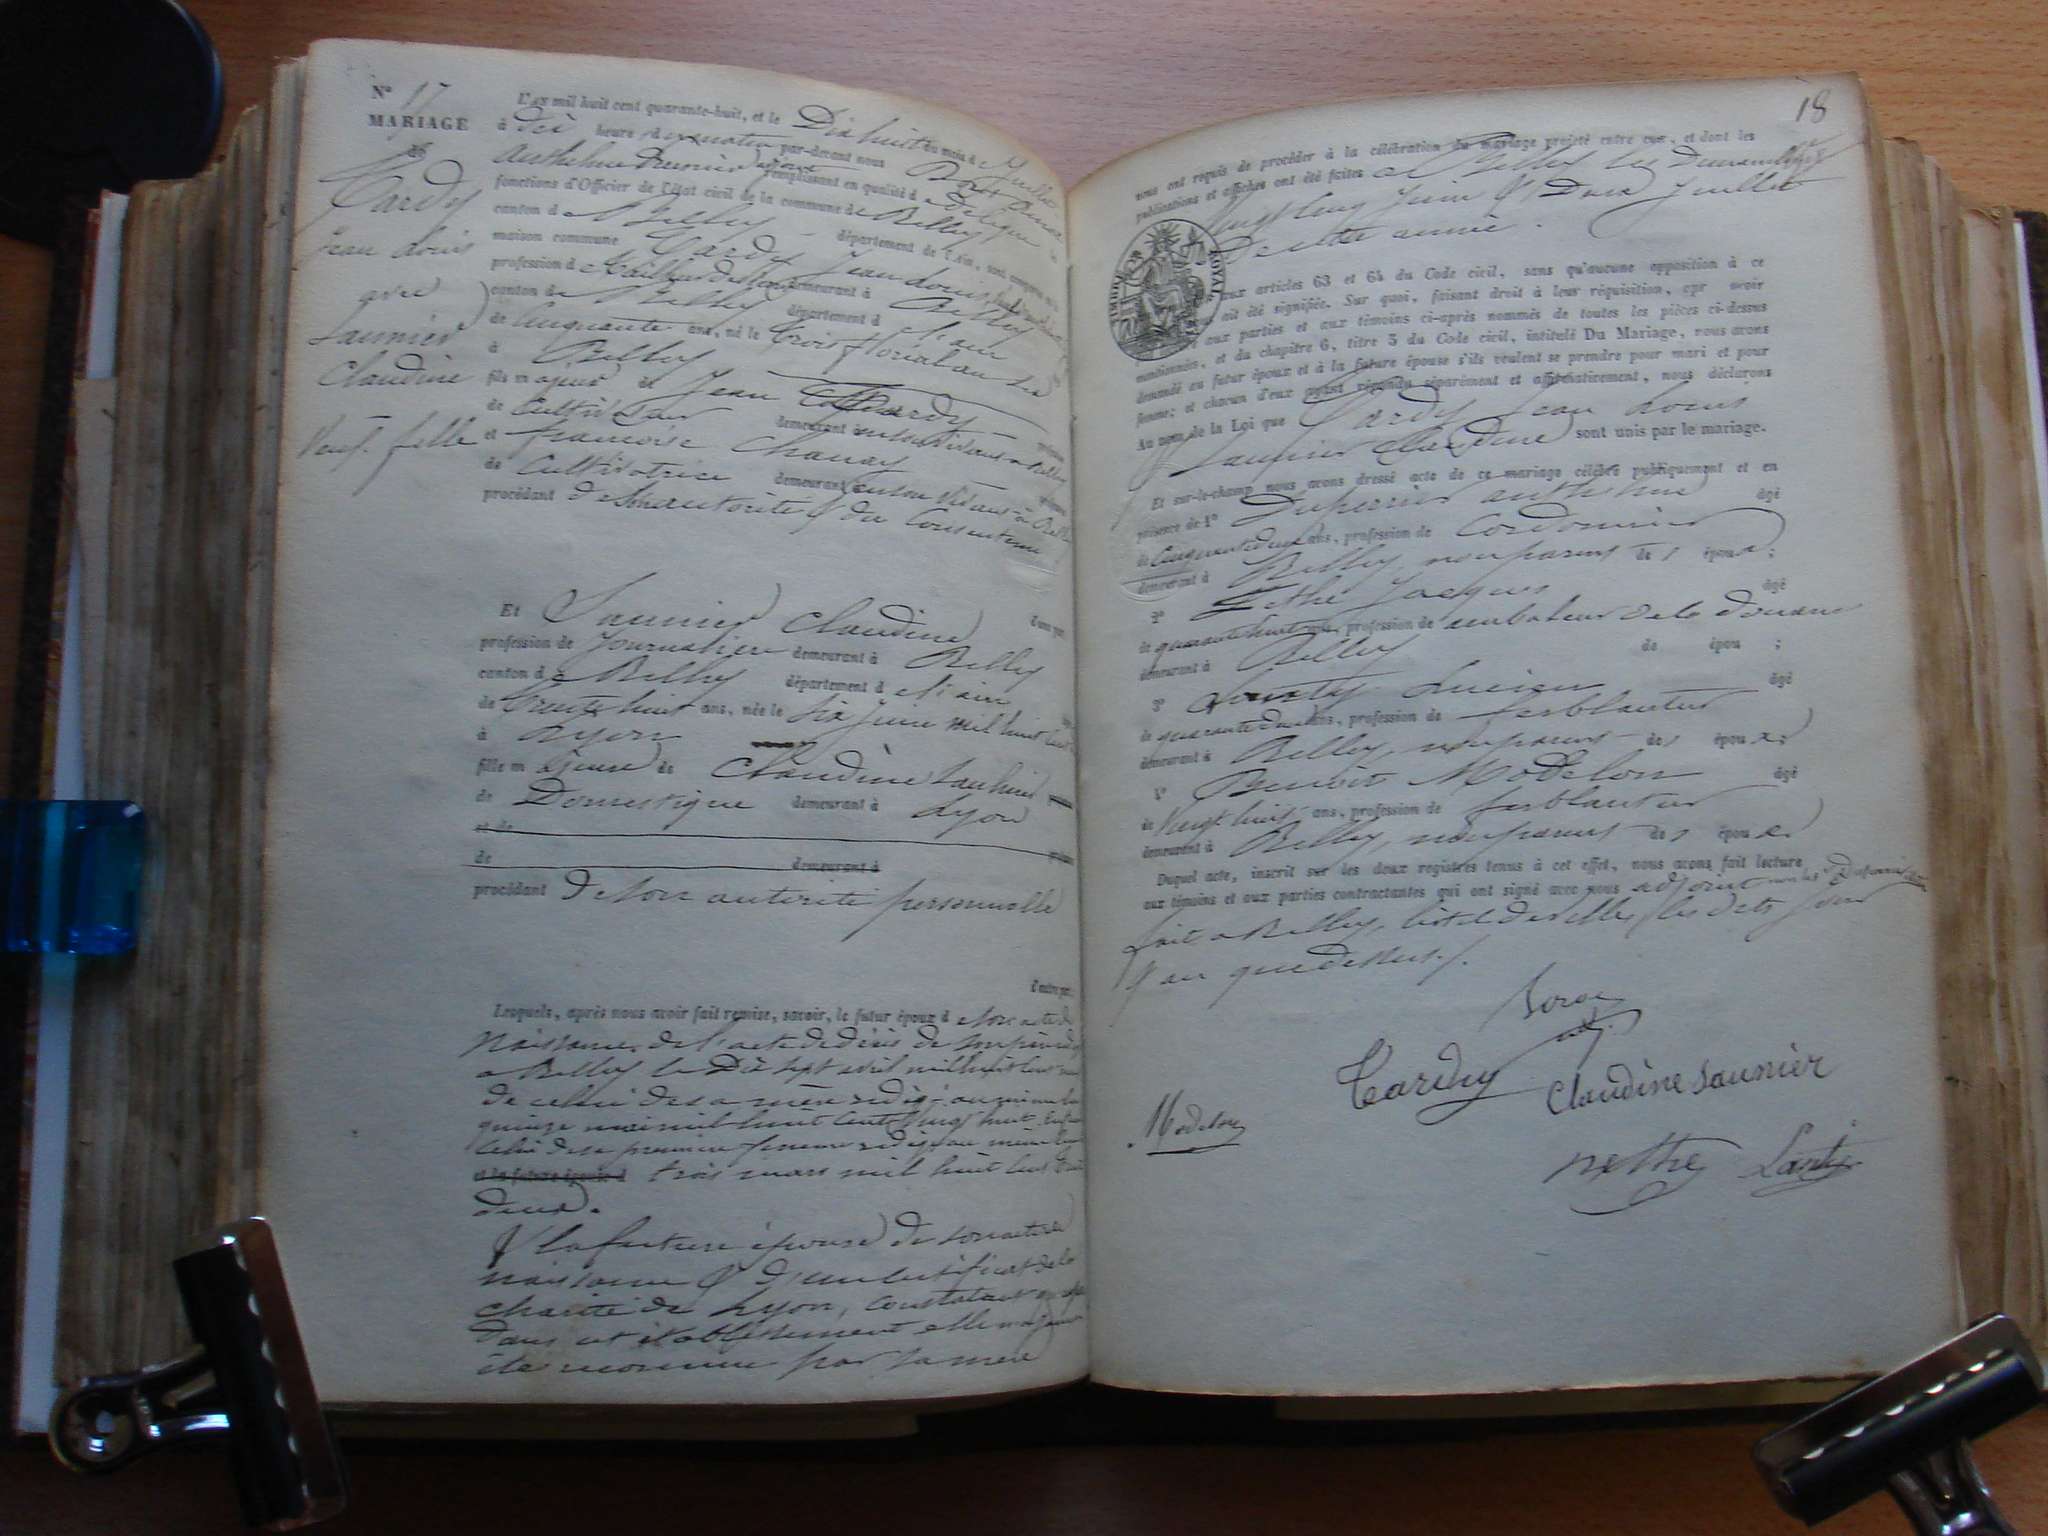 N° 17
MARIAGE
de
Tardy
Jean Louis
avec
Saunier
Claudine
Veuf. fille
L'an mil huit cent quarante-huit, et le Dix huit du mois de Juillet
à dix heure d u matin par-devant nous
Anthelme remplissant en qualité d
fonctions d'Officier de l'état civil de la commune de Belley
canton de Belley département de l'Ain, sont comparus en la
maison commune Tardy Jean Louis
profession d demeurant à Belley
canton de Belley département d e l'ain
de Cinquante ans, né le trois floréal an six
à Belley
fils majeur de Jean Tardy
de Cultivateur demeurant en son vivant à Belley
et françoise Chanay
de Cultivatrice demeurant en son vivant à Belley
procédant de son autorité
d'une part
Et Saunier Claudine
profession de Journalière demeurant à Belley
canton de Belley département d e l'ain
de trente huit ans, née le six Juin mil huit cent
à Lyon
fille majeure de Claudine Saunier
de Domestique demeurant à Lyon
et de
de demeurant à
procédant de son autorité personnelle
d'autre part.
Lesquels, après nous avoir fait remise, savoir, le futur époux d e son acte de
Naissance, de l'acte de décès de son père rédigé
a Belley le Dix sept avril mil huit cent
de celui de sa mère rédigé au même lieu
quinze mai mil huit cent vingt huit. Enfin
celui de sa première femme rédigé au même lieu
et la future épouse d trois mars mil huit cent
deux.
& la future épouse de son acte de
naissance & d'un certificat de la
charité de Lyon, constatant que
dans cet établissement elle n'a jamais
été reconnue par sa mère
18
nous ont requis de procéder à la célébration du mariage projeté entre eux, et dont les
publications et affiches ont été faites a Belley les Dimanches
vingt cinq Juin & Deux Juillet
De cette année.
TIMBRE ROYAL
aux articles 63 et 64 du Code civil, sans qu'aucune opposition à ce
ait été signifiée. Sur quoi, faisant droit à leur réquisition, apr avoir
aux parties et aux témoins ci-après nommés de toutes les pièces ci-dessus
mentionnées, et du chapitre 6, titre 5 du Code civil, intitulé Du Mariage, nous avons
demandé au futur époux et à la future épouse s'ils veulent se prendre pour mari et pour
femme; et chacun d'eux ayant répondu séparément et affirmativement, nous déclarons
Au nom de la Loi que Tardy Jean Louis
& Saunier Claudine sont unis par le mariage.
Et sur-le-champ nous avons dressé acte de ce mariage célébré publiquement et en
présence de 1° Duperrier anthelme âgé
de Cinquante deux ans, profession de Cordonnier
demeurant à Belley, non parent des époux;
2° Nethe Jacques âgé
de quarante huit ans, profession de de la douane
demeurant à Belley de épou ;
3° Lanty Lucien âgé
de quarante deux ans, profession de ferblantier
demeurant à Belley, non parent des époux;
4° Benoît Modelon âgé
de Vingt huit ans, profession de ferblantier
demeurant à Belley, non parent des époux
Duquel acte, inscrit sur les deux registres tenus à cet effet, nous avons fait lecture
aux témoins et aux parties contractantes qui ont signé avec nous adjoint
fait a Belley, hôtel de ville, les dits jour
& an que dessus.
Tardy
Claudine Saunier
Modelon
nethe
Lanty